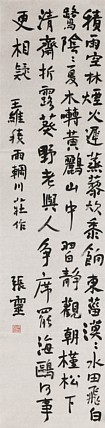 積雨空林煙火遲蒸藜炊黍餉東菑漠々水田飛白
鷺陰々夏木囀黃鸝山中習靜觀朝槿松下
清齋折露葵野老與人爭席罷海鷗何事
更相疑
王維積雨輞川莊作
張靈